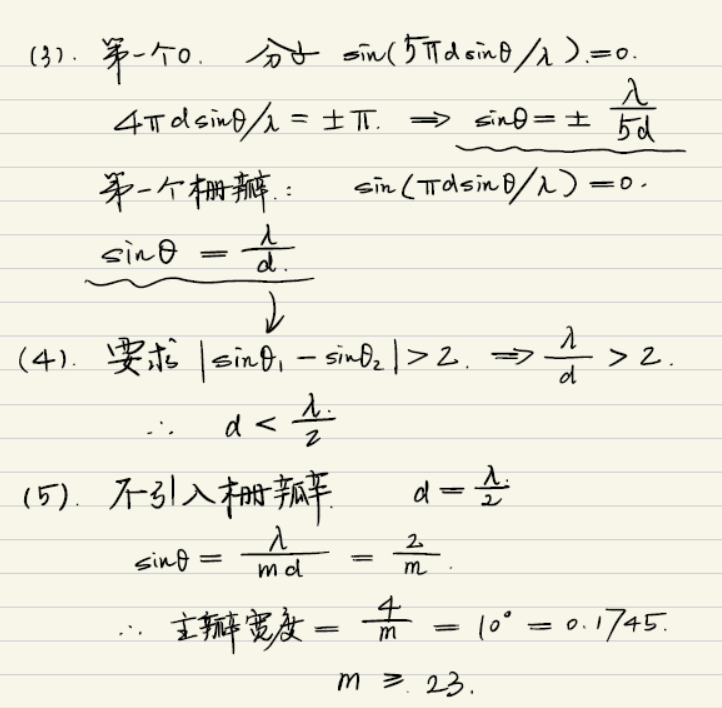 (3). 第一个0. 分子 sin(5πdsinθ/λ).=0.
4πdsinθ/λ = ±π. ⇒ sinθ = ± λ/5d
第一个栅瓣: sin(πdsinθ/λ)=0.
sinθ = λ/d.
↓
(4). 要求 |sinθ₁ - sinθ₂| > 2. ⇒ λ/d > 2.
∴ d < λ/2
(5). 不引入栅瓣 d = λ/2
sinθ = λ/md = 2/m.
∴ 主瓣宽度 = 4/m = 10° = 0.1745.
m ≥ 23.